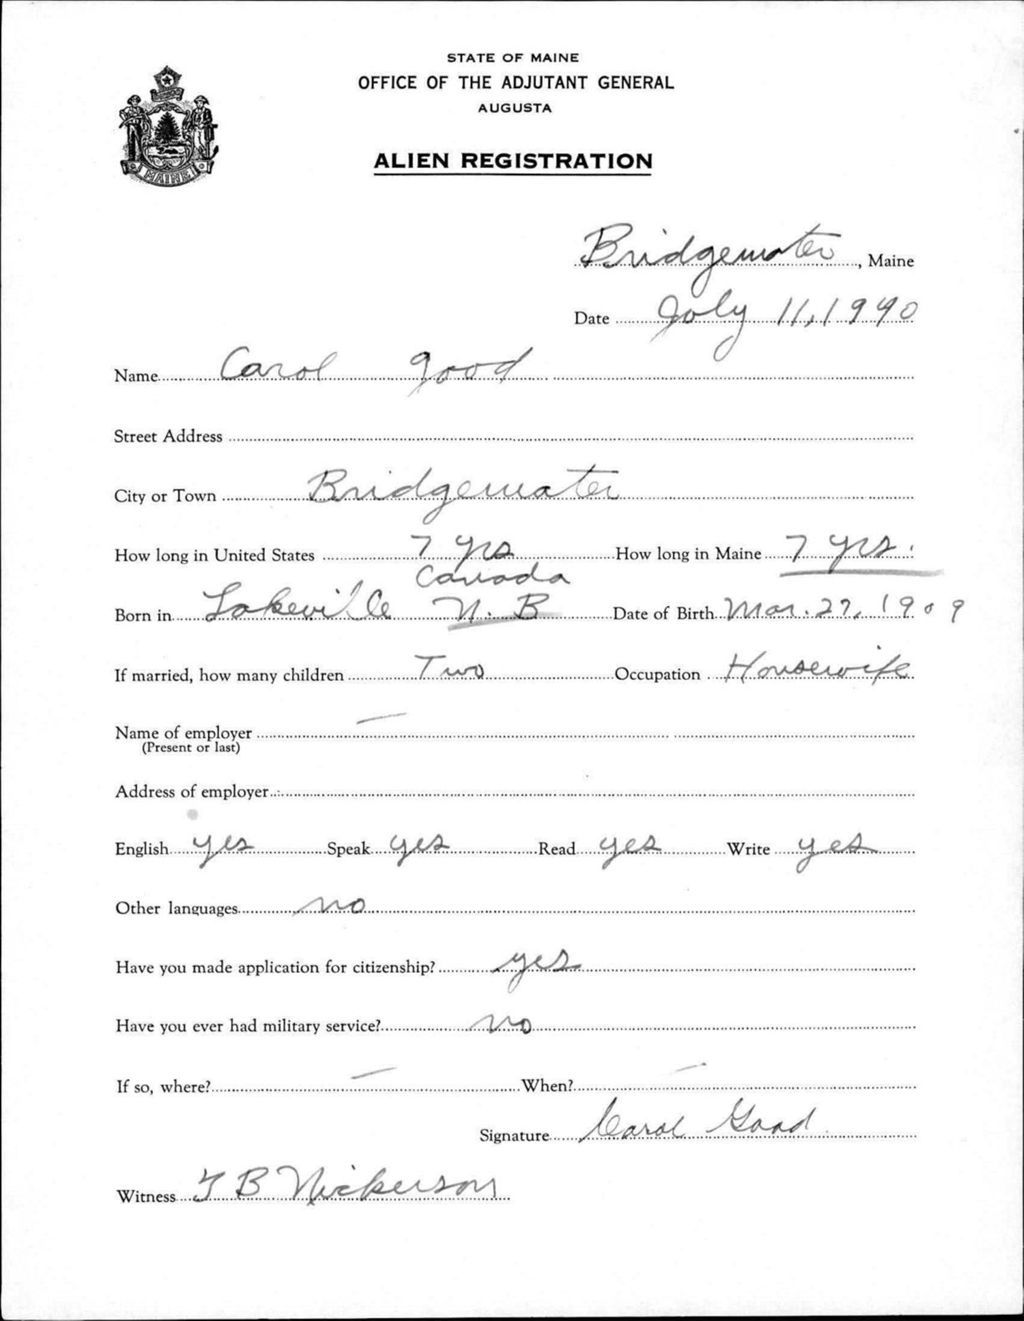 STATE OF MAINE
OFFICE OF THE ADJUTANT GENERAL
AUGUSTA
MAINE
ALIEN REGISTRATION
Bridgewater, Maine
Date July 11, 1940
Name Carol Good
Street Address
City or Town Bridgewater
How long in United States 7 yrs How long in Maine 7 yrs.
Canada
Born in Lakeville N. B Date of Birth Mar. 27, 1909
If married, how many children Two Occupation Housewife
Name of employer —
(Present or last)
Address of employer
English yes Speak yes Read yes Write yes
Other languages no
Have you made application for citizenship? yes
Have you ever had military service? no
If so, where? — When? —
Signature Carol Good
Witness T B Nickerson